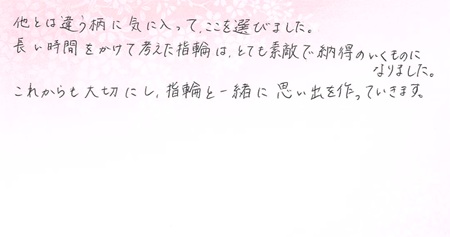 他とは違う柄に気に入って、ここを選びました。
長い時間をかけて考えた指輪は、とても素敵で納得のいくものに
なりました。
これからも大切にし、指輪と一緒に思い出を作っていきます。